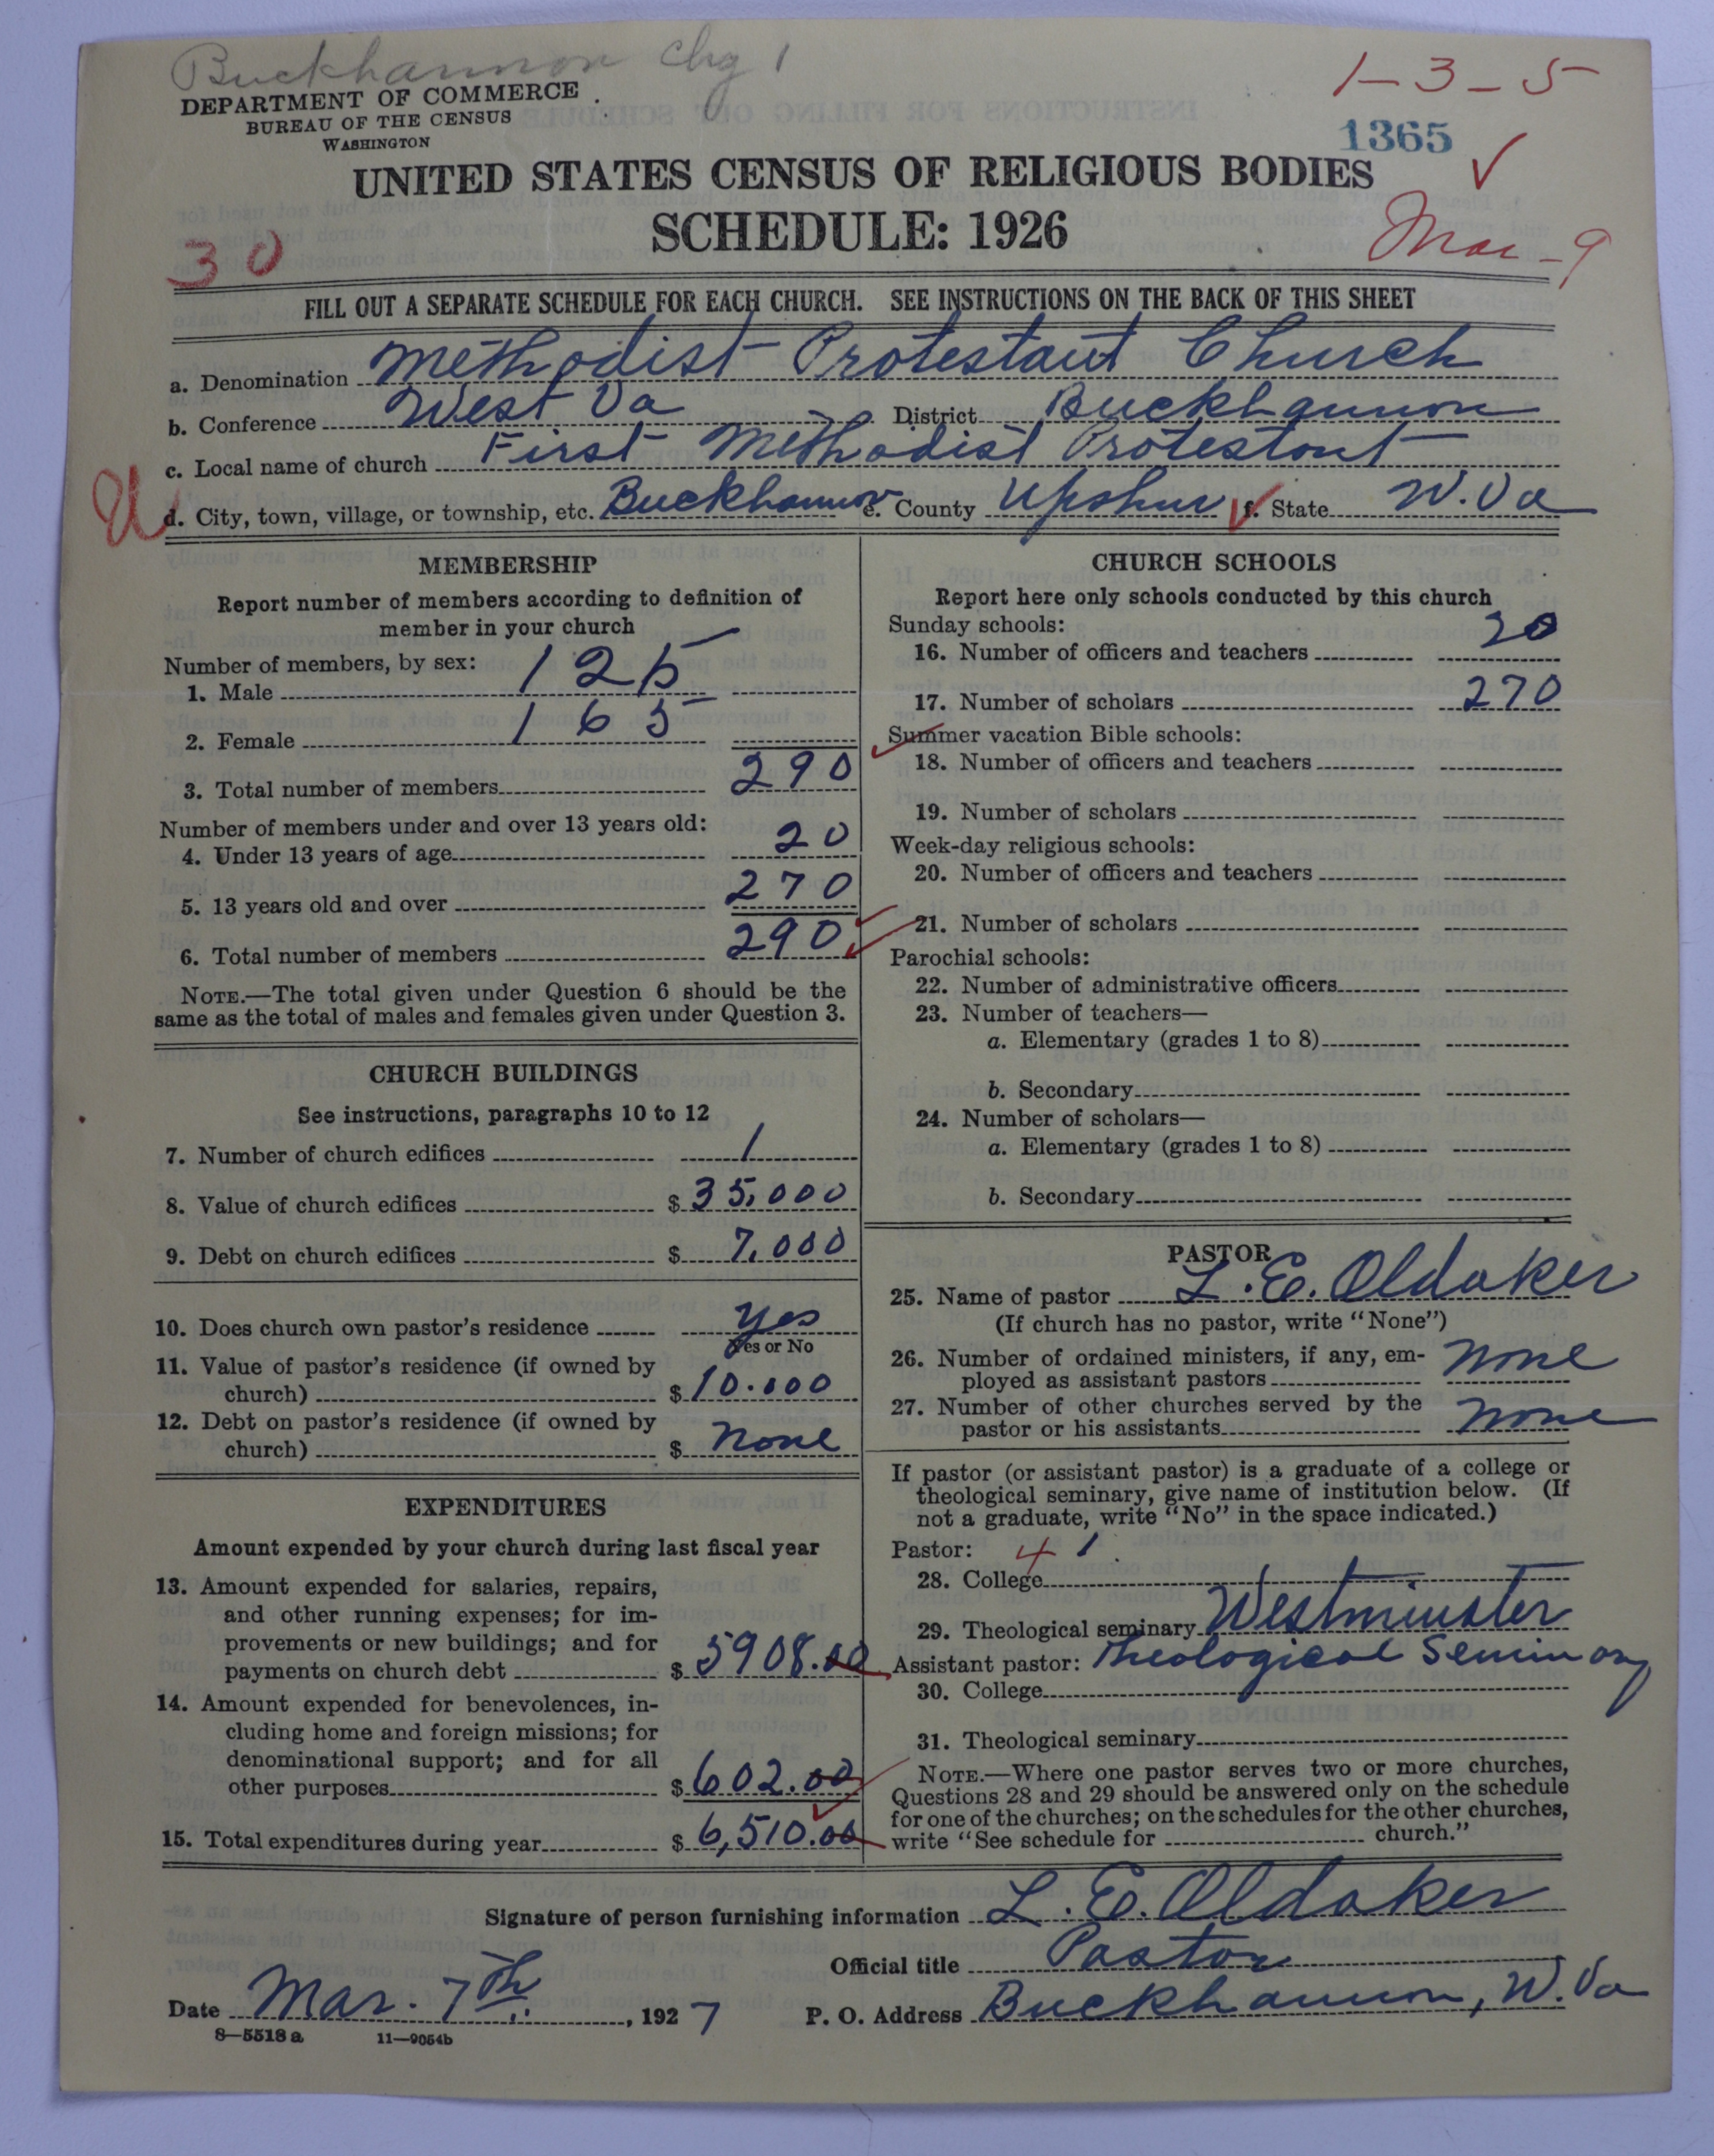 Buckhannon Chg 1
DEPARTMENT OF COMMERCE
BUREAU OF THE CENSUS
WASHINGTON
1-3-5
1365
UNITED STATES CENSUS OF RELIGIOUS BODIES
SCHEDULE: 1926
30
Mar-9
FILL OUT A SEPARATE SCHEDULE FOR EACH CHURCH. SEE INSTRUCTIONS ON THE BACK OF THIS SHEET
a. Denomination Methodist Protestant Church
b. Conference West Va District Buckhannon
c. Local name of church First Methodist Protestant
U d. City, town, village, or township, etc. Buckhannon e. County Upshur f. State W. Va
MEMBERSHIP
Report number of members according to definition of
member in your church
Number of members, by sex:
1. Male 125
2. Female 165
3. Total number of members 290
Number of members under and over 13 years old:
4. Under 13 years of age 20
5. 13 years old and over 270
6. Total number of members 290
NOTE.—The total given under Question 6 should be the
same as the total of males and females given under Question 3.
CHURCH BUILDINGS
See instructions, paragraphs 10 to 12
7. Number of church edifices 1
8. Value of church edifices $ 35,000
9. Debt on church edifices $ 7,000
10. Does church own pastor's residence yes
Yes or No
11. Value of pastor's residence (if owned by
church) $ 10.000
12. Debt on pastor's residence (if owned by
church) $ none
EXPENDITURES
Amount expended by your church during last fiscal year
13. Amount expended for salaries, repairs,
and other running expenses; for im-
provements or new buildings; and for
payments on church debt $ 5908.00
14. Amount expended for benevolences, in-
cluding home and foreign missions; for
denominational support; and for all
other purposes $ 602.00
15. Total expenditures during year $ 6,510.00
CHURCH SCHOOLS
Report here only schools conducted by this church
Sunday schools:
16. Number of officers and teachers 20
17. Number of scholars 270
Summer vacation Bible schools:
18. Number of officers and teachers
19. Number of scholars
Week-day religious schools:
20. Number of officers and teachers
21. Number of scholars
Parochial schools:
22. Number of administrative officers
23. Number of teachers—
a. Elementary (grades 1 to 8)
b. Secondary
24. Number of scholars—
a. Elementary (grades 1 to 8)
b. Secondary
PASTOR
25. Name of pastor L. E. Oldaker
(If church has no pastor, write "None")
26. Number of ordained ministers, if any, em-
ployed as assistant pastors none
27. Number of other churches served by the
pastor or his assistants none
If pastor (or assistant pastor) is a graduate of a college or
theological seminary, give name of institution below. (If
not a graduate, write "No" in the space indicated.)
Pastor: 4 1
28. College
29. Theological seminary Westminster
Theological Seminary
Assistant pastor:
30. College
31. Theological seminary
NOTE.—Where one pastor serves two or more churches,
Questions 28 and 29 should be answered only on the schedule
for one of the churches; on the schedules for the other churches,
write "See schedule for church."
Signature of person furnishing information L. E. Oldaker
Official title Pastor
Date Mar. 7th, 1927 P. O. Address Buckhannon, W. Va
8—5518 a 11—9054b